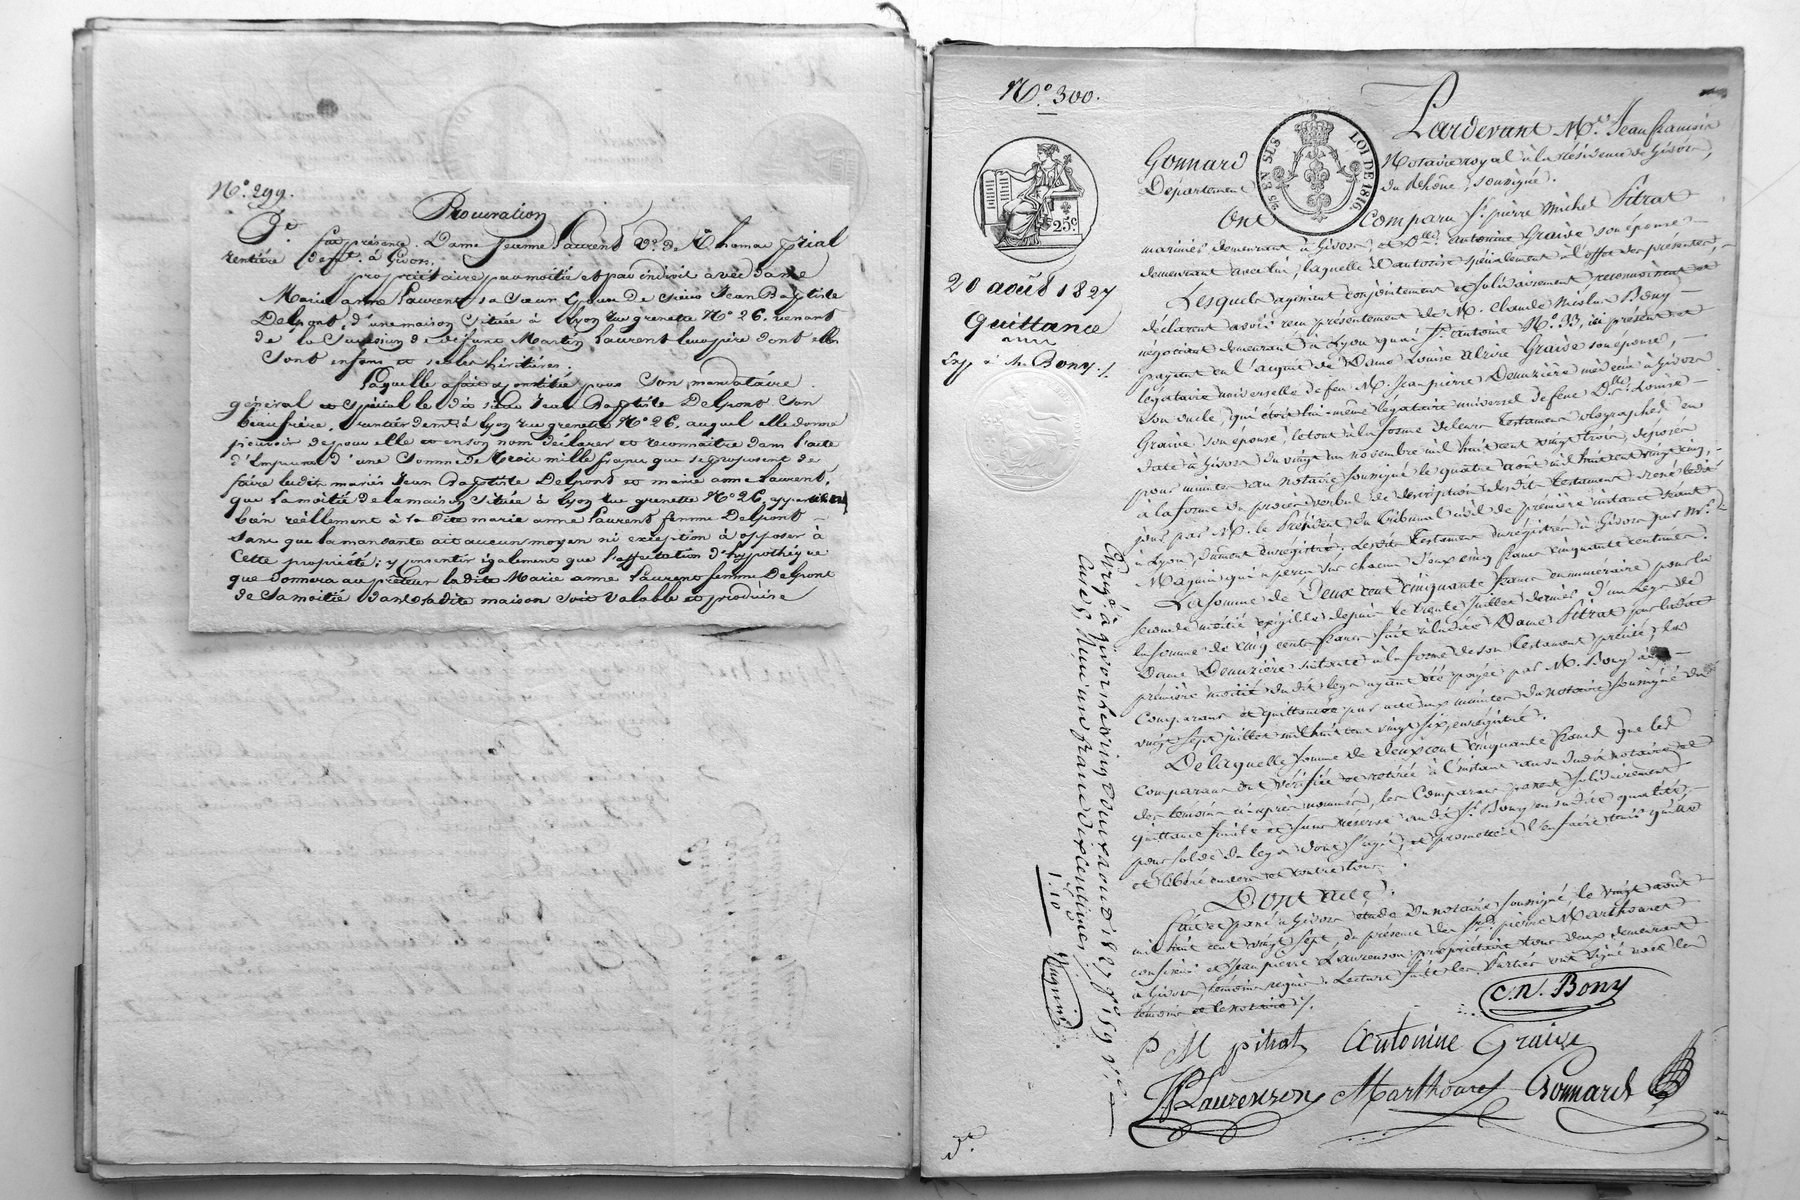 N.° 299.
Procuration
Fut présente Dame Jeanne Laurent V.e de
rentière dem.t à Givors.
propriétaire pour moitié et par indivis avec dame
Marie anne Laurent sa sœur épouse de sieur Jean Baptiste
Delpont d'une maison située à Lyon rue grenette N.° 26. venant
de la succession de défunt Martin Laurent leur père dont elles
sont enfans et seules héritières.
Laquelle a fait et constitué pour son mandataire
général et spécial le dit sieur Jean Baptiste Delpont son
beau frère, rentier dem.t à Lyon rue grenette N.° 26, auquel elle donne
pouvoir de pour elle et en son nom déclarer et reconnaitre dans l'acte
d'Emprunt d'une somme de trois mille francs que se proposent de
faire les dits mariés Jean Baptiste Delpont et marie anne Laurent,
que la moitié de la maison située à Lyon rue grenette N.° 26, appartient
bien réellement à la dite marie anne Laurent femme Delpont
sans que la mandante ait aucun moyen ni exception à opposer à
cette propriété; y consentir également que l'affectation d'hypothèque
que donnera au prêteur la dite Marie anne Laurent femme Delpont
de sa moitié dans la dite maison soit valable et produise
N.° 300.
25 c
EN SUS
LOI DE 1816.
20 août 1827
Quittance
Exp à M. Bony
Pardevant M.e Jean françois
Gonnard Notaire royal à la résidence de Givors,
Département du Rhône, soussigné.
Ont Comparu S.r pierre Michel Pitrat
demeurant à Givors et D.lle antonine Graive son épouse
demeurant avec lui, laquelle il autorise spécialement à l'effet des présentes,
Lesquels agissant conjointement et solidairement reconnaissent et
déclarent avoir reçu présentement de M. Claude Nicolas Bony
négociant demeurant à Lyon quai S.t antoine N.° 33, ici présent et
payant en l'acquit de Dame Louise alzire Graive son épouse,
légataire universelle de feu M. Jean pierre Donzière médecin à Givors
son oncle, qui étoit lui même légataire universel de feue D.lle Louise
Graive son épouse, le tout à la forme de leurs testamens olographes en
date à Givors du vingt un novembre mil huit cent vingt trois, déposés
pour minutes au notaire soussigné le quatre août mil huit cent vingt cinq,
à la forme du procès verbal de description desdits testamens
jour par M. le Président du tribunal civil de première instance séant
à Lyon, dument enregistré. Lesdits testamens enregistrés à Givors par M.r
Maguin qui a perçu sur chacun d'eux cinq francs cinquante centimes.
La somme de Deux cent cinquante francs en numéraire pour la
seconde moitié exigible depuis le trente juillet dernier d'un legs de
la somme de cinq cents francs fait à ladite Dame Pitrat par ladite
Dame Donzière suivant et à la forme de son testament précité; la
première moitié du dit legs ayant été payée par M. Bony aux
Comparans et quittancée par acte aux minutes du notaire soussigné du
vingt sept juillet mil huit cent vingt six, enregistré.
De laquelle somme de deux cent cinquante francs que les
Comparans ont vérifiée et retirée à l'instant au vu dudit notaire et
des témoins ci après nommés, les Comparans passent solidairement
quittance finale et sans réserve audit S.r Bony en sadite qualité,
pour solde du legs dont s'agit, et promettent l'en faire tenir quitte
et libéré envers et contre tous.
Dont acte,
fait et passé à Givors étude du notaire soussigné, le vingt août
mil huit cent vingt sept, en présence des S.rs pierre Marthouret
confiseur et Jean pierre Laurenson propriétaire tous deux demeurant
à Givors, témoins requis. Lecture faite les Parties ont signé avec les
témoins et le notaire.
C. N. Bony
P M pitrat Antonine Graive
JP Laurenson Marthouret Gonnard
Enreg.é à givors le vingt deux aout 1827 f.o 159
Case 5, Reçu un franc dix centimes
1.10
Maguin